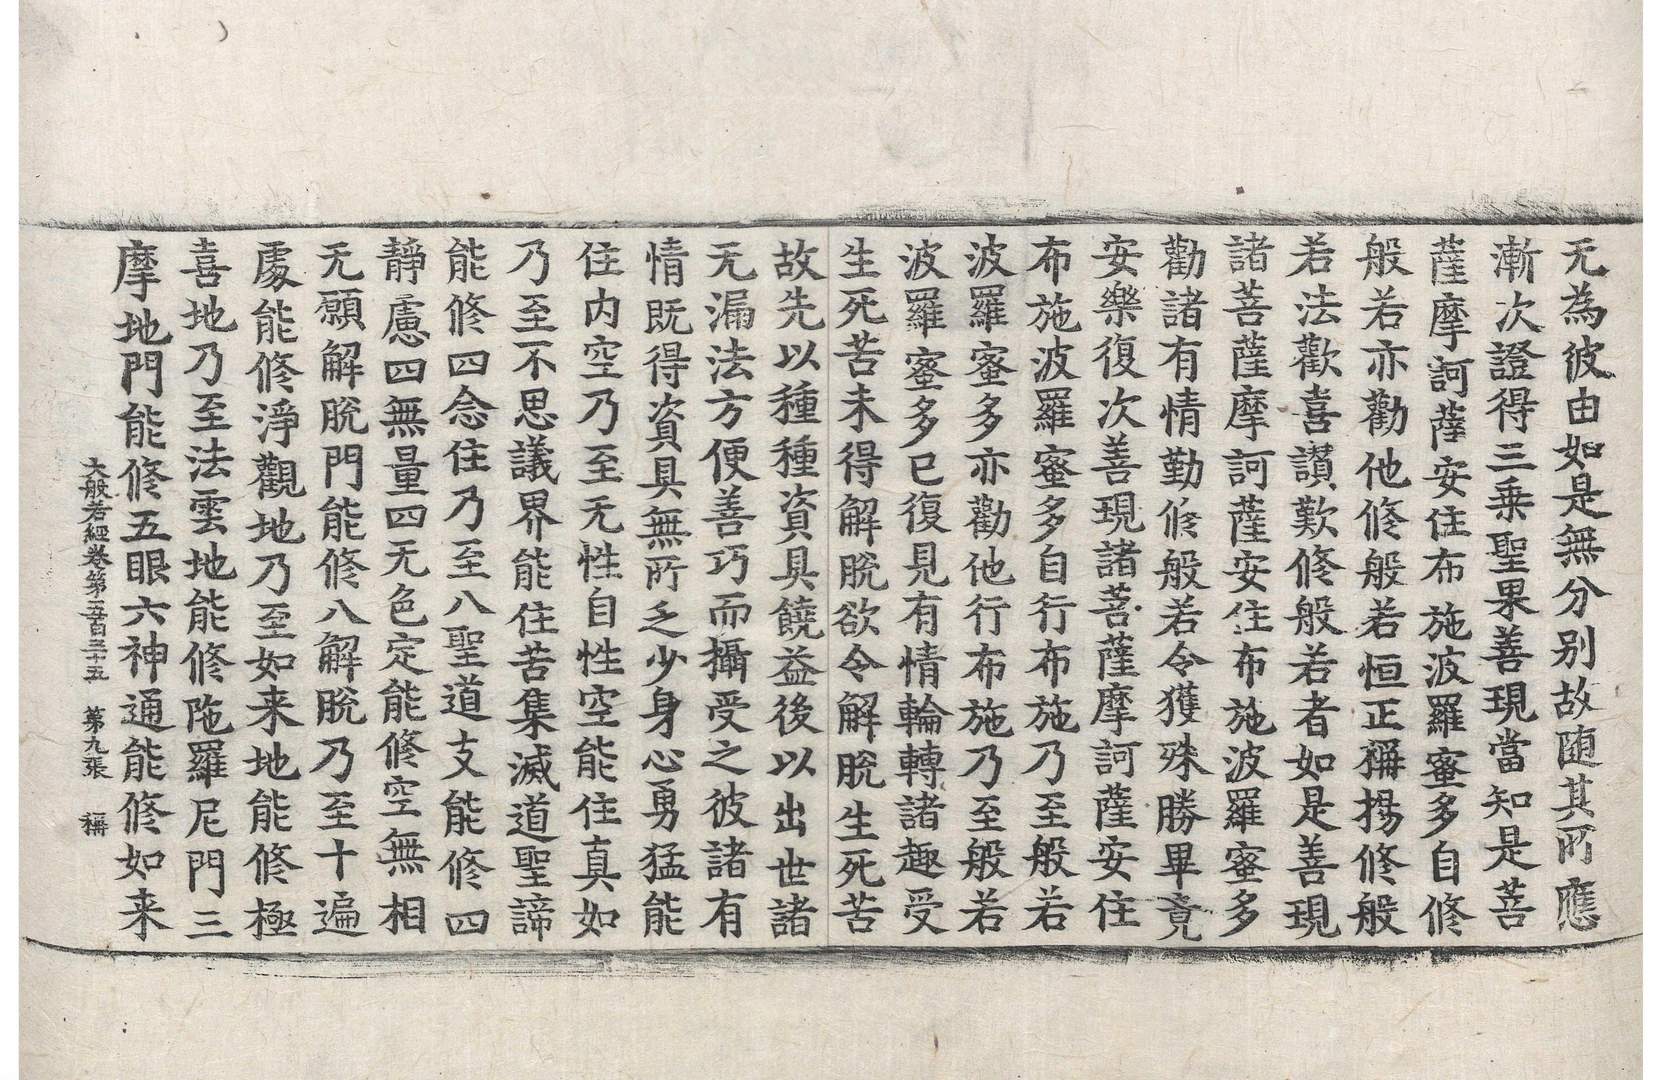 无為彼由如是無分别故随其所應
漸次證得三乗聖果善現當知是菩
薩摩訶薩安住布施波羅蜜多自修
般若亦勸他修般若恒正稱揚修般
若法歡喜讃歎修般若者如是善現
諸菩薩摩訶薩安住布施波羅蜜多
勸諸有情勤修般若令獲殊勝畢竟
安樂復次善現諸菩薩摩訶薩安住
布施波羅蜜多自行布施乃至般若
波羅蜜多亦勸他行布施乃至般若
波羅蜜多已復見有情輪轉諸趣受
生死苦未得解脫欲令解脫生死苦
故先以種種資具饒益後以出世諸
无漏法方便善巧而攝受之彼諸有
情既得資具無所乏少身心勇猛能
住内空乃至无性自性空能住真如
乃至不思議界能住苦集滅道聖諦
能修四念住乃至八聖道支能修四
靜慮四無量四无色定能修空無相
无願解脫門能修八解脫乃至十遍
處能修淨觀地乃至如来地能修極
喜地乃至法雲地能修陁羅尼門三
摩地門能修五眼六神通能修如来
大般若經卷第五百三十五　第九張　稱